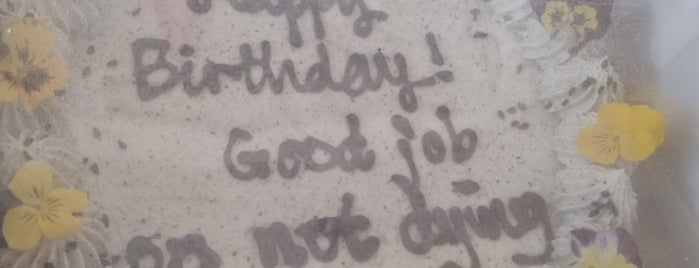 Happy
Birthday!
Good job
on not dying